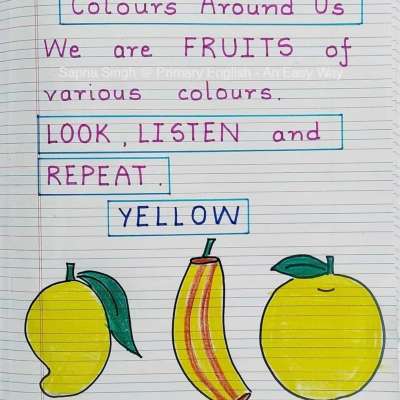 Colours Around Us
We are FRUITS of
Sapna Singh @ Primary English - An Easy Way
various colours.
LOOK, LISTEN and
REPEAT.
YELLOW